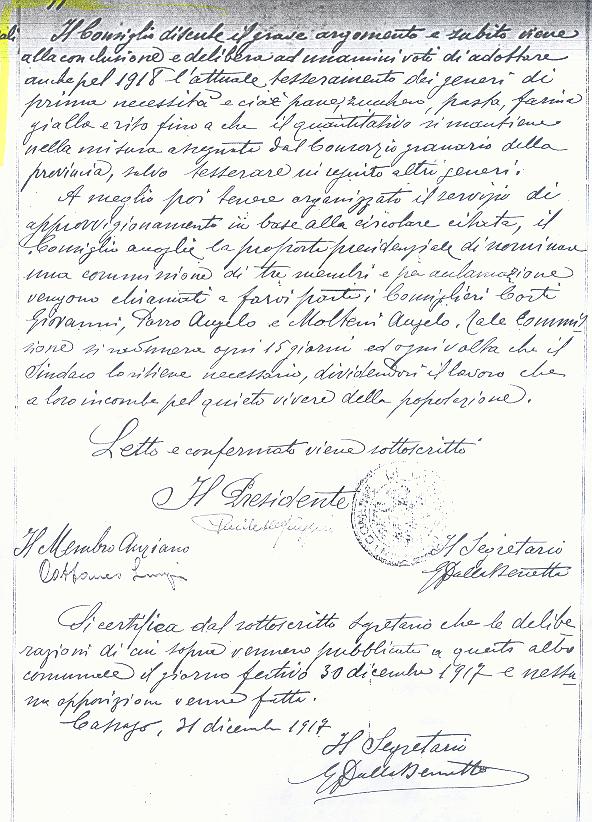 Il Consiglio discute il grave argomento e subito viene
alla conclusione e delibera ad unanimi voti di adottare
anche pel 1918 l'attuale tesseramento dei generi di
prima necessità e cioè pane, zucchero, pasta, farina
gialla e riso fino a che il quantitativo si mantiene
nella misura assegnata dal Consorzio granario della
provincia, salvo tesserare in seguito altri generi.
A meglio poi tenere organizzato il servizio di
approvvigionamento in base alla circolare citata, il
Consiglio accoglie la proposta presidenziale di nominare
una commissione di tre membri e per acclamazione
vengono chiamati a farvi parte i Consiglieri Corti
Giovanni, Parro Angelo e Molteni Angelo. Tale Commis-
sione si radunerà ogni 15 giorni ed ogni volta che il
Sindaco lo ritiene necessario, dividendosi il lavoro che
a loro incombe pel quieto vivere della popolazione.
Letto e confermato viene sottoscritto
Il Presidente
Il Membro Anziano
Il Segretario
Cattaneo Luigi
G Dalla Benetta
Si certifica dal sottoscritto Segretario che le delibe
razioni di cui sopra vennero pubblicate a questo albo
comunale il giorno festivo 30 dicembre 1917 e nessu-
na opposizione venne fatta.
Cassago, 31 dicembre 1917
Il Segretario
G Dalla Benetta